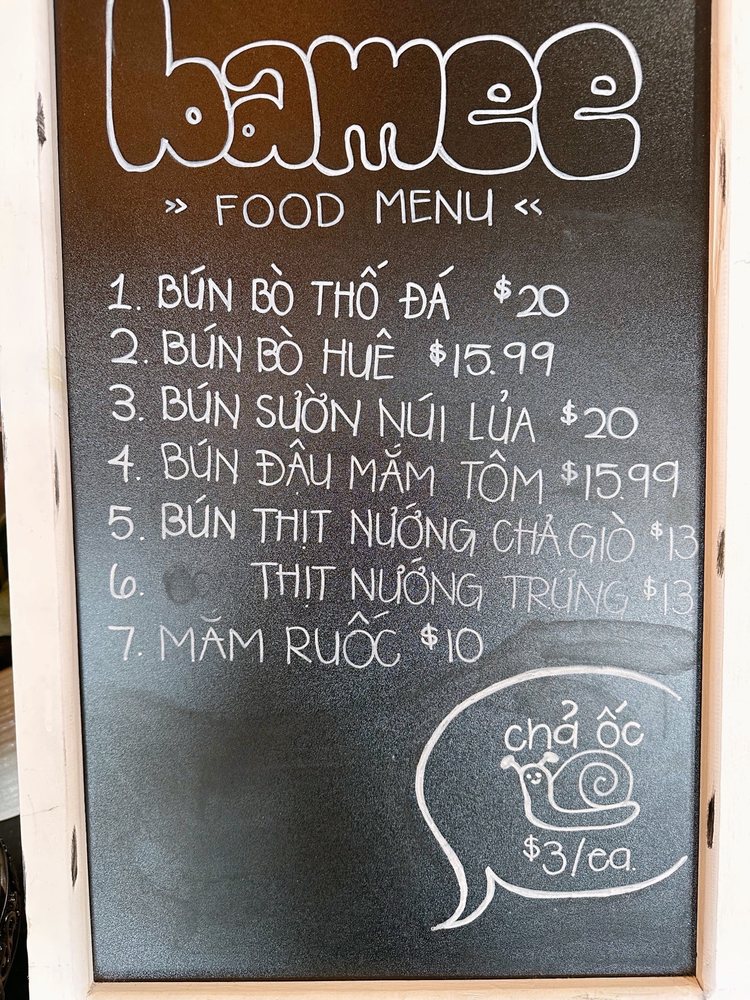 bamee
» FOOD MENU «
1. BÚN BÒ THỐ ĐÁ $20
2. BÚN BÒ HUÊ $15.99
3. BÚN SƯỜN NÚI LỦA $20
4. BÚN ĐẬU MẮM TÔM $15.99
5. BÚN THỊT NƯỚNG CHẢ GIÒ $13
6. THỊT NƯỚNG TRỨNG $13
7. MẮM RUỐC $10
chả ốc
$3/ea.